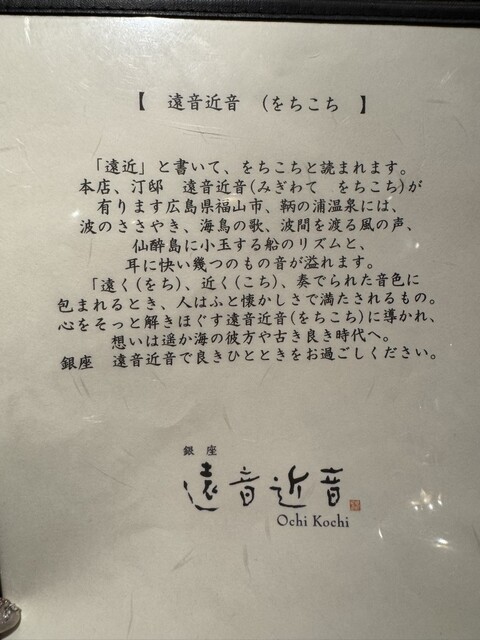 【　遠音近音　(をちこち　】
「遠近」と書いて、をちこちと読まれます。
本店、汀邸　遠音近音(みぎわて　をちこち)が
有ります広島県福山市、鞆の浦温泉には、
波のささやき、海鳥の歌、波間を渡る風の声、
仙酔島に小玉する船のリズムと、
耳に快い幾つのもの音が溢れます。
「遠く(をち)、近く(こち)、奏でられた音色に
包まれるとき、人はふと懐かしさで満たされるもの。
心をそっと解きほぐす遠音近音(をちこち)に導かれ、
想いは遥か海の彼方や古き良き時代へ。
銀座　遠音近音で良きひとときをお過ごしください。
銀座
遠音近音
Ochi Kochi